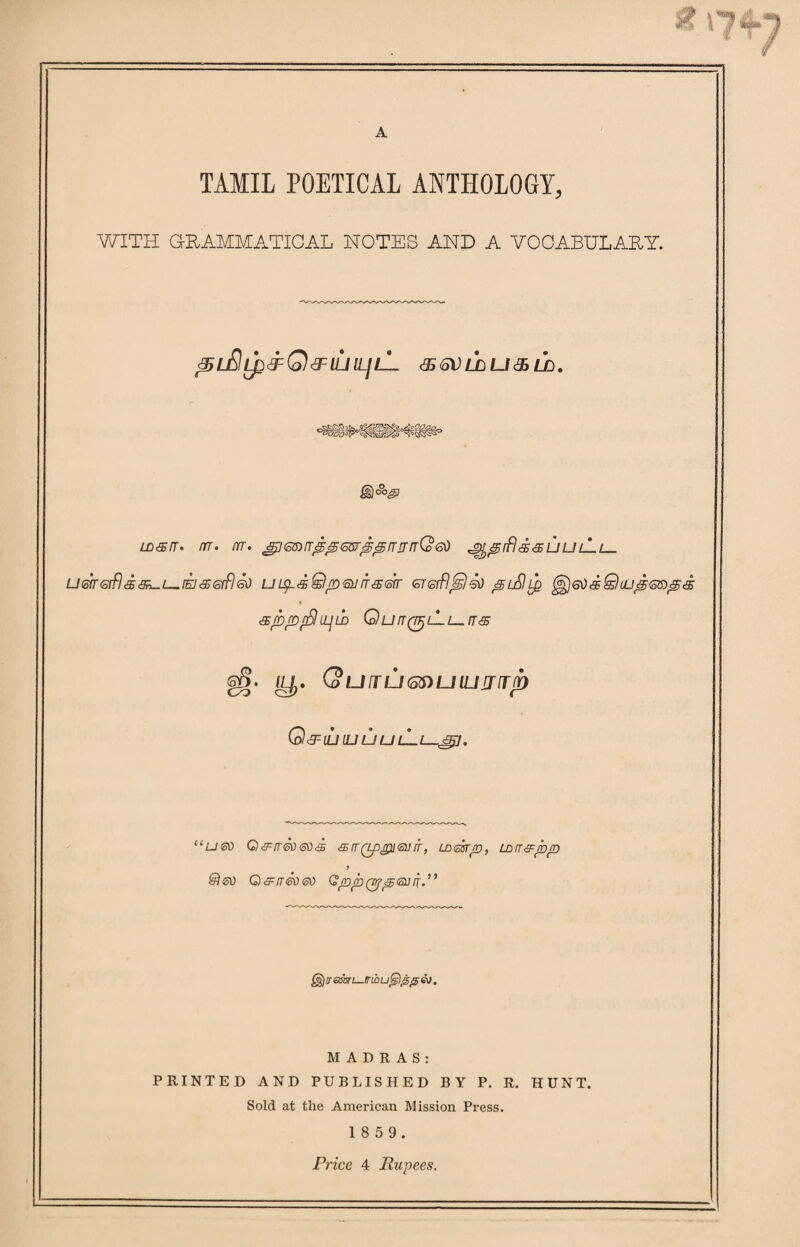 21747
A
TAMIL POETICAL ANTHOLOGY,
WITH GRAMMATICAL NOTES AND A VOCABULARY.
தமிழ்ச்செய்யுட் கலம்பகம்.
இஃது
மகா. ரா. ரா. துரைத்தனத்தாராலே அதரிக்கப்பட்ட
பள்ளிக்கூடங்களில் படிக்கிறவர்கள் எளிதில் தமிழ் இலக்கியத்தைக்
கற்றறியும் பொருட்டாக
ஜீ. யூ. போப்பையராற்
செய்யப்பட்டது.
“பல சொல்லக் காமுறுவர், மன்ற, மாசற்ற
சில சொல்லல் தேற்றாதவர்.”
இரண்டாம்பதித்தல்.
MADRAS:
PRINTED AND PUBLISHED BY P. R. HUNT.
Sold at the American Mission Press.
1859.
Price 4 Rupees.